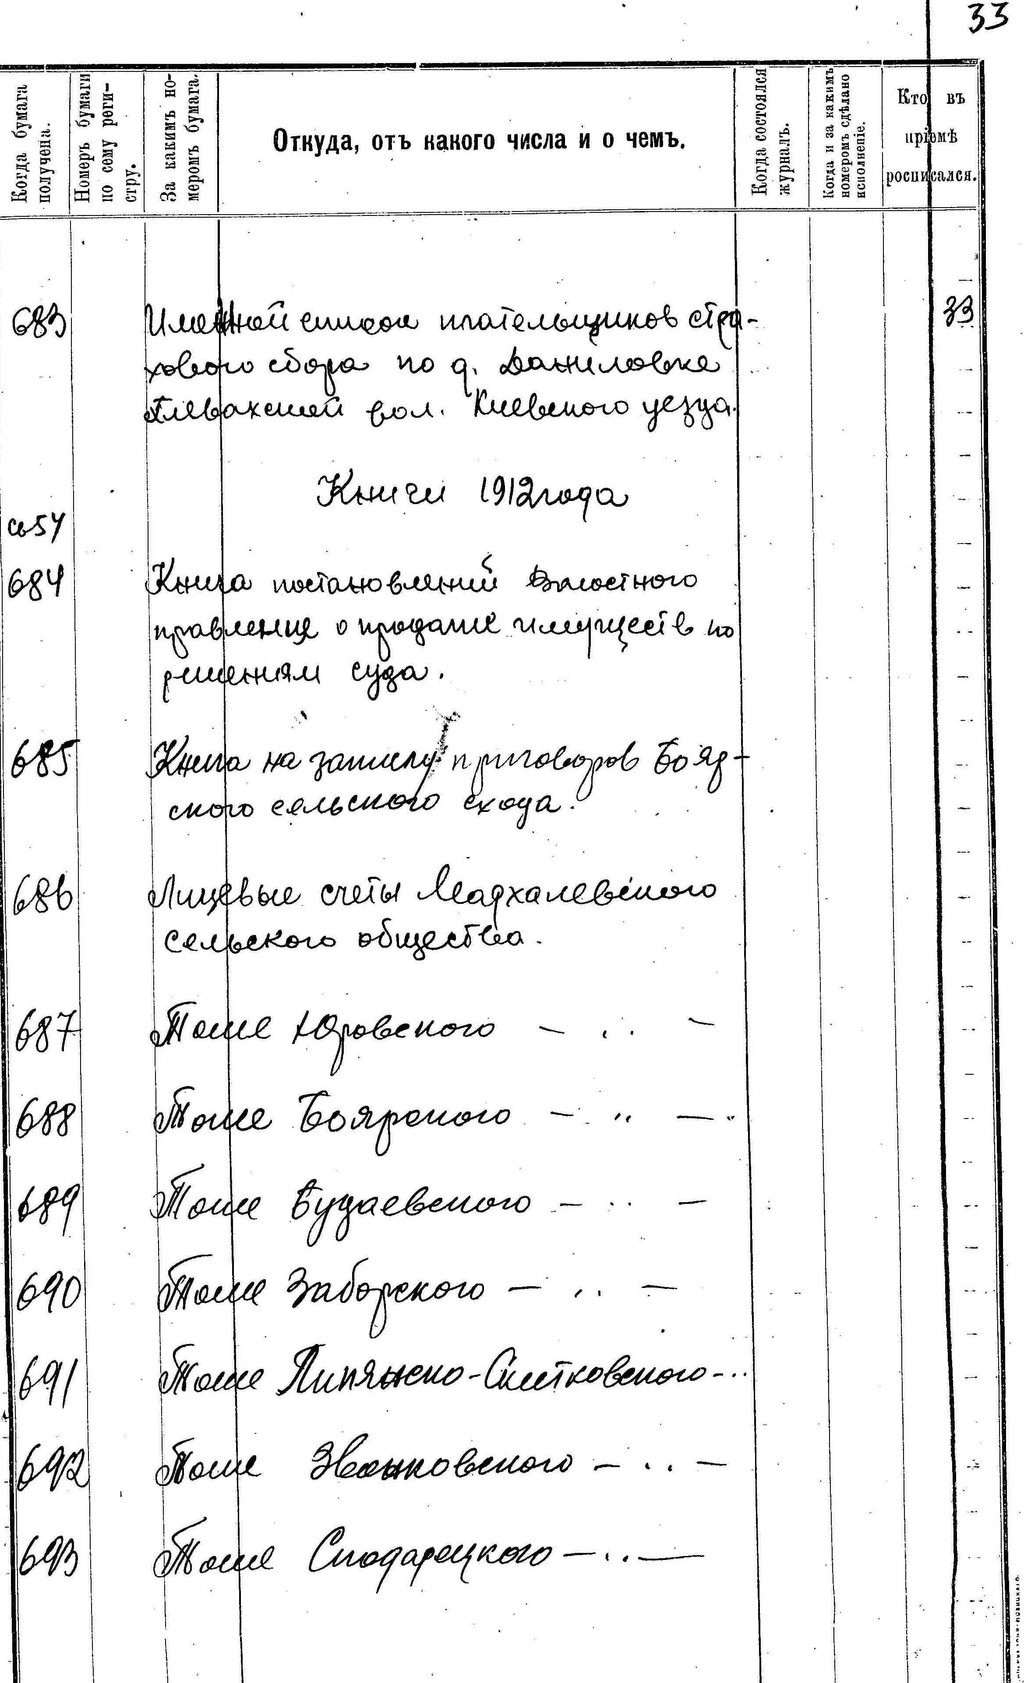 33
Когда бумага получена.
Номеръ бумаги по сему реги-стру.
За какимъ но-меромъ бумага.
Откуда, отъ какого числа и о чемъ.
Когда состоялся журналъ.
Когда и за какимъ номеромъ сдѣлано исполненіе.
Кто въ пріемѣ росписался.
683 Именной список плательщиков стра- 33
хового сбора по д. Даниловка
Глевахской вол. Киевского уезда.
Книги 1912 года
684 Книга постановлений Волостного
правления о продаже имуществ по
решениям суда.
685 Книга на записку приговоров Бояр-
ского сельского схода.
686 Лицевые счеты Малхалевского
сельского общества.
687 Тоже Юровского — .. —
688 Тоже Боярского — „ —
689 Тоже Будаевского — .. —
690 Тоже Заборского — .. —
691 Тоже Липянско-Скитковского — ..
692 Тоже Звонковского — .. —
693 Тоже Сподарецкого — .. —